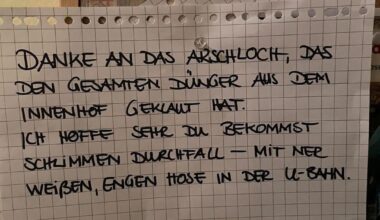 DANKE AN DAS ARSCHLOCH, DAS
DEN GESAMTEN DÜNGER AUS DEM
INNENHOF GEKLAUT HAT.
ICH HOFFE SEHR DU BEKOMMST
SCHLIMMEN DURCHFALL – MIT NER
WEIßEN, ENGEN HOSE IN DER U-BAHN.